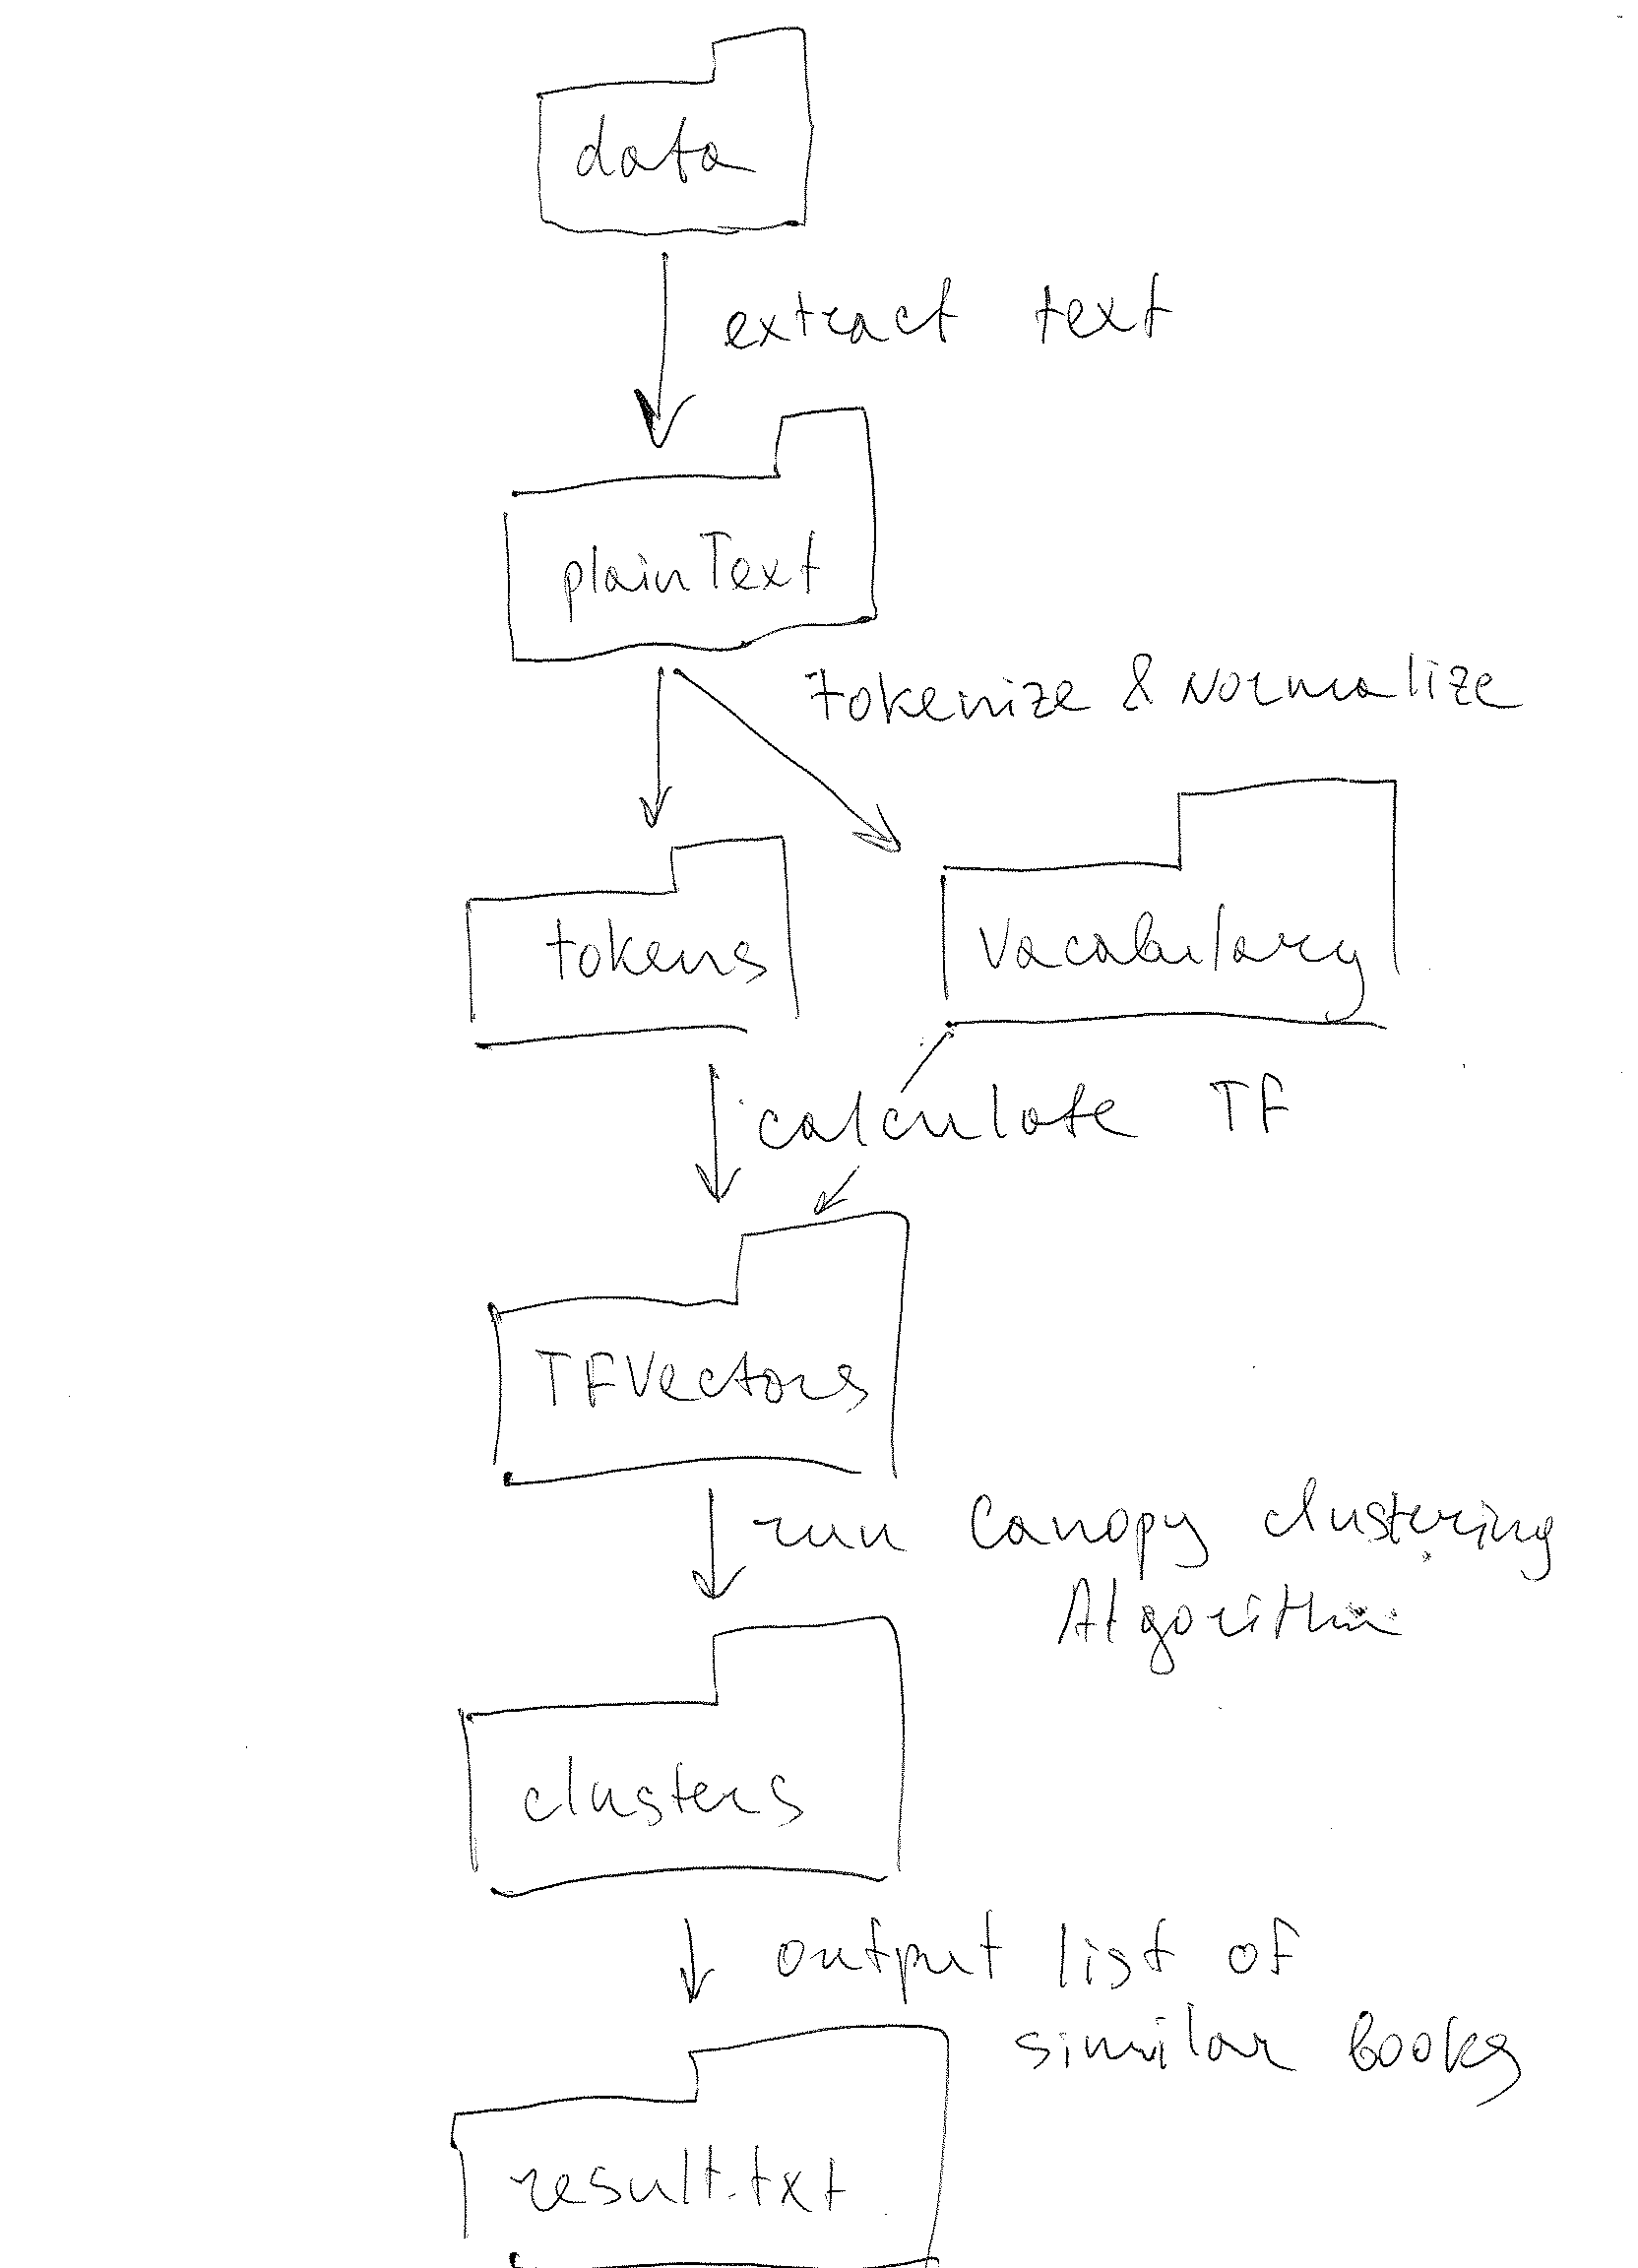 data
extract text
plainText
tokenize & Normalize
tokens
Vacabulary
calculate TF
TFVectors
run Canopy clustering
Algorithm
clusters
output list of
similar books
result.txt